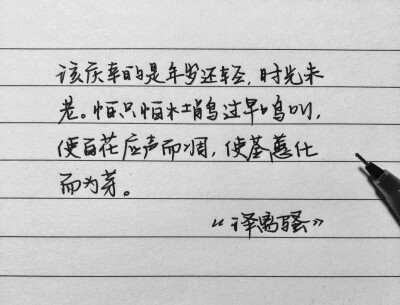 该庆幸的是年岁还轻，时光未
老。怕只怕杜鹃鸟过早鸣叫，
使百花应声而凋，使荃蕙化
而为芽。
《译离骚》